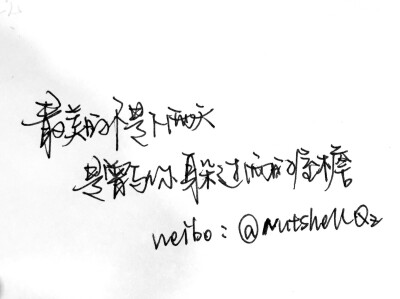 最美的不是下雨天
是曾与你躲过雨的屋檐
weibo：@NutshellQz